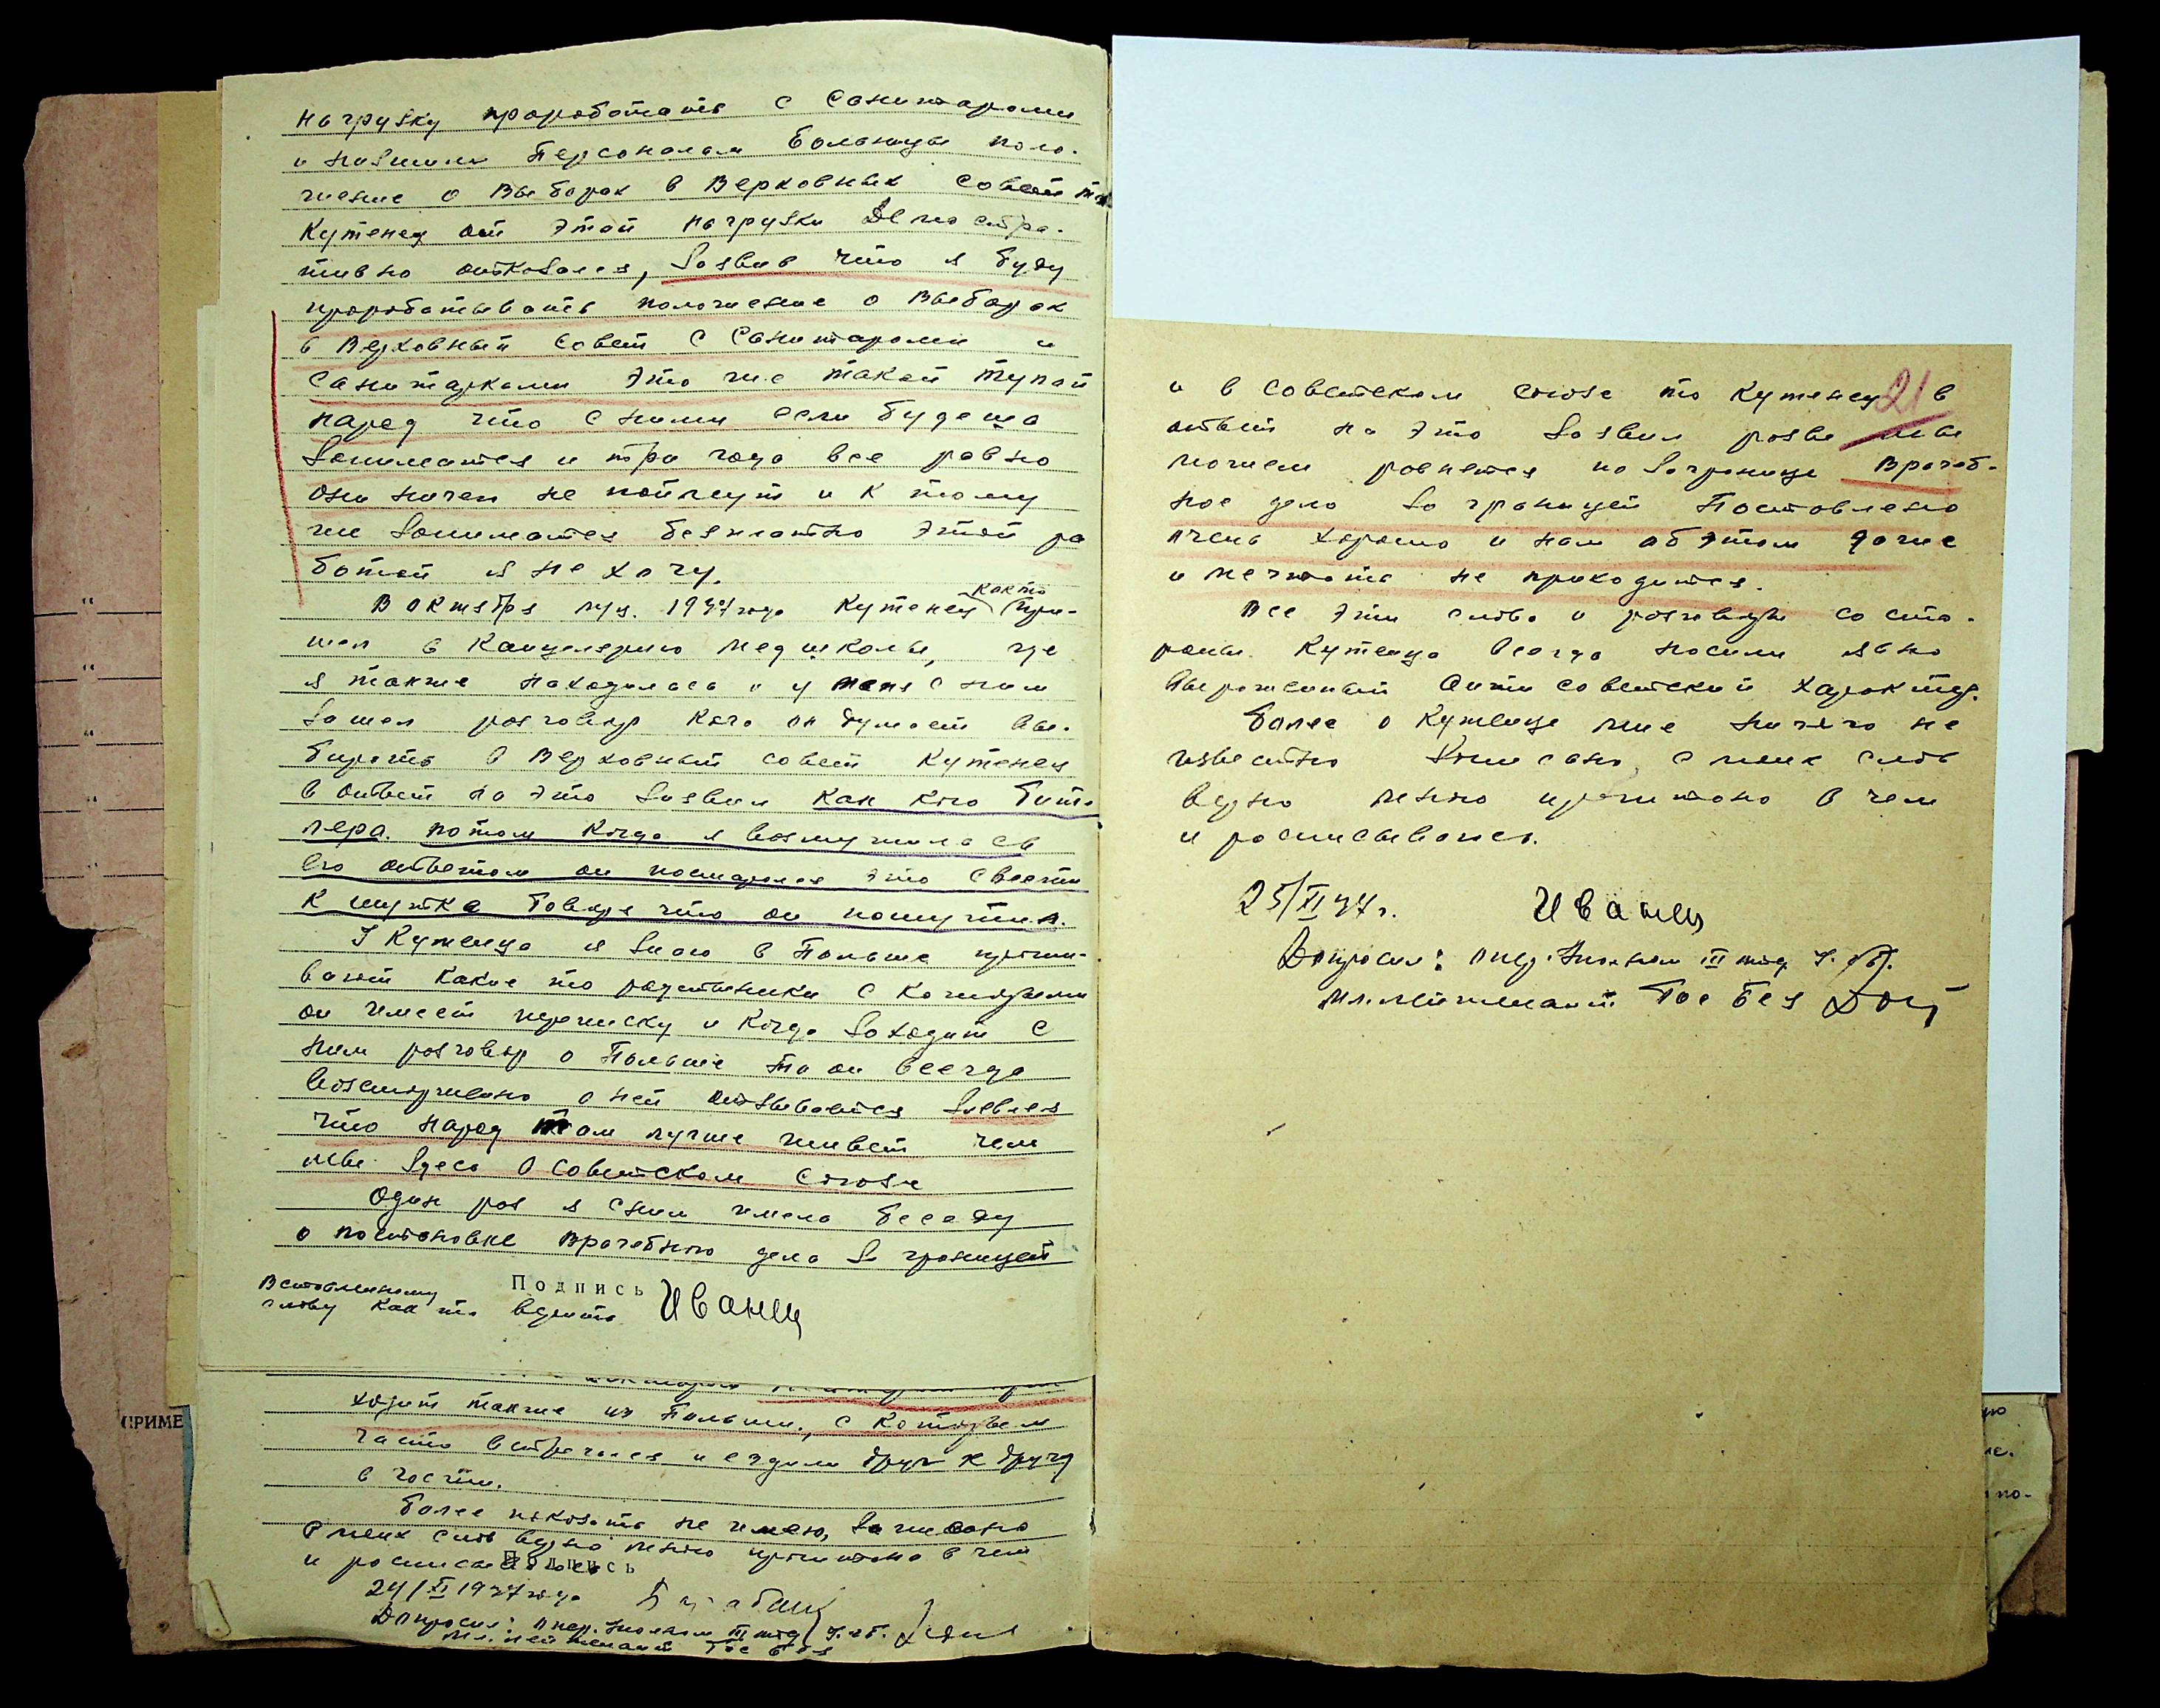 нагрузку проработать с санитарами
и низшим Персоналом Больницы поло-
жение о Выборах в Верховных совет
Кутенец от этой нагрузки Демостра-
тивно отказался, заявив что я буду
прорабатывать положение о Выборах
в Верховный совет с санитарами и
санитарками это же такой тупой
народ что с ними если будеш
заниматся и три года все равно
они ничего не поймут и к тому
же заниматся безплатно этой ра
ботой я не хочу.
В октябре м-це. 1937 года Кутенец как то при-
шел в Канцелярию Медшколы, где
я также находилась и у меня с ним
зашел разговор кого он думает вы-
бирать в Верховный совет Кутенец
в ответ на это заявил как кого Гит-
лера. потом когда я возмутилась
его ответом он постарался это свести
к шутке говоря что он пошутил.
У Кутенца я знаю в Польше прожи-
вают какие то родственики с которыми
он имеет переписку и когда заходит с
ним разговор о Польше то он всегда
восторжено о ней отзывается заявляя
что народ там лучше живет чем
мы здесь в советском союзе
Один раз я с ним имела беседу
о постановке врачебного дела за границей
Вставленному
слову как то верить
Подпись Иванец
ходит также из Польши, с которым
часто встречался и ездили друг к другу
в гости.
Более показать не имею, записано
с моих слов верно мною прочитано в чем
и росписываюсь
Подпись
24/XI 1937 года
Допросил: опер. Уполном III отд У.Г.Б.
Мл. лейтенант Гос Без
и в советском союзе то Кутенец в
21
ответ на это заявил разве мы
можем равнятся на заграницу врачеб-
ное дело за границей Поставлено
очень хорошо и нам об этом даже
и мечтать не приходится.
Все эти слова и разговоры со сто-
роны Кутенца всегда носили явно
выраженный антисоветский характер.
Более о Кутенце мне ничего не
известно Записано, с моих слов
верно мною прочитано в чем
и росписываюсь.
25/XI 37 г. Иванец
Допросил: опер. Уполном III отд У.Г.Б.
Мл. лейтенант Гос Без
ПРИМЕ